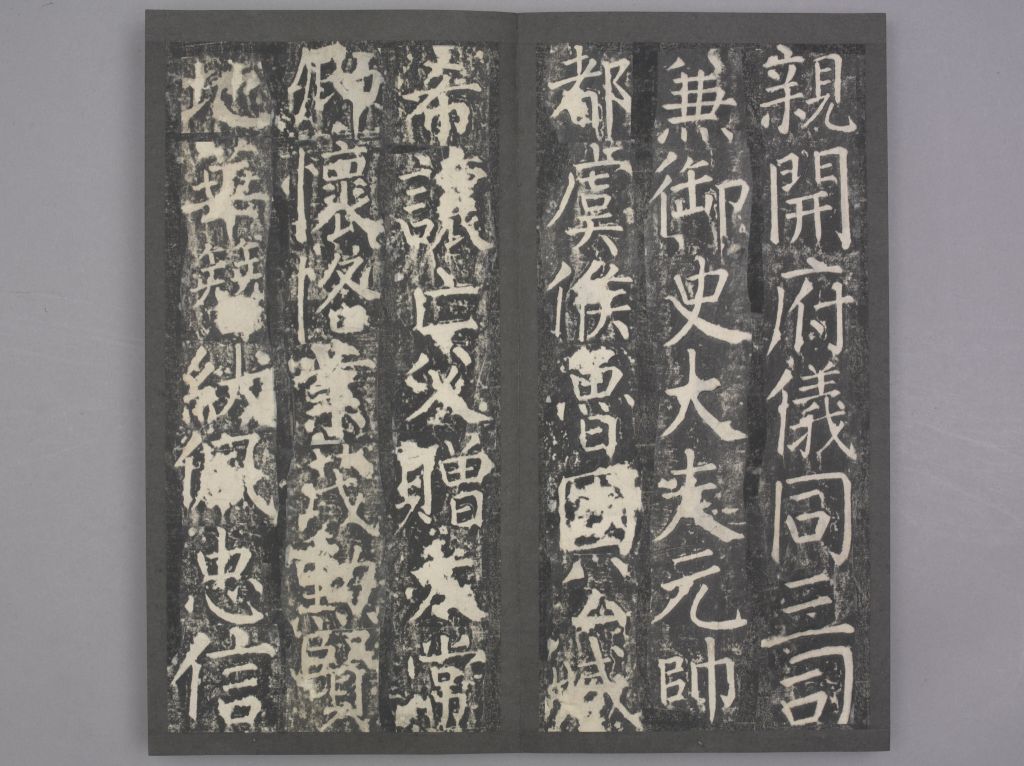 親開府儀同三司
兼御史大夫元帥
都虞候魯國公臧
希讓亡父贈太常
卿懷恪業茂勳賢
地華紱佩忠信